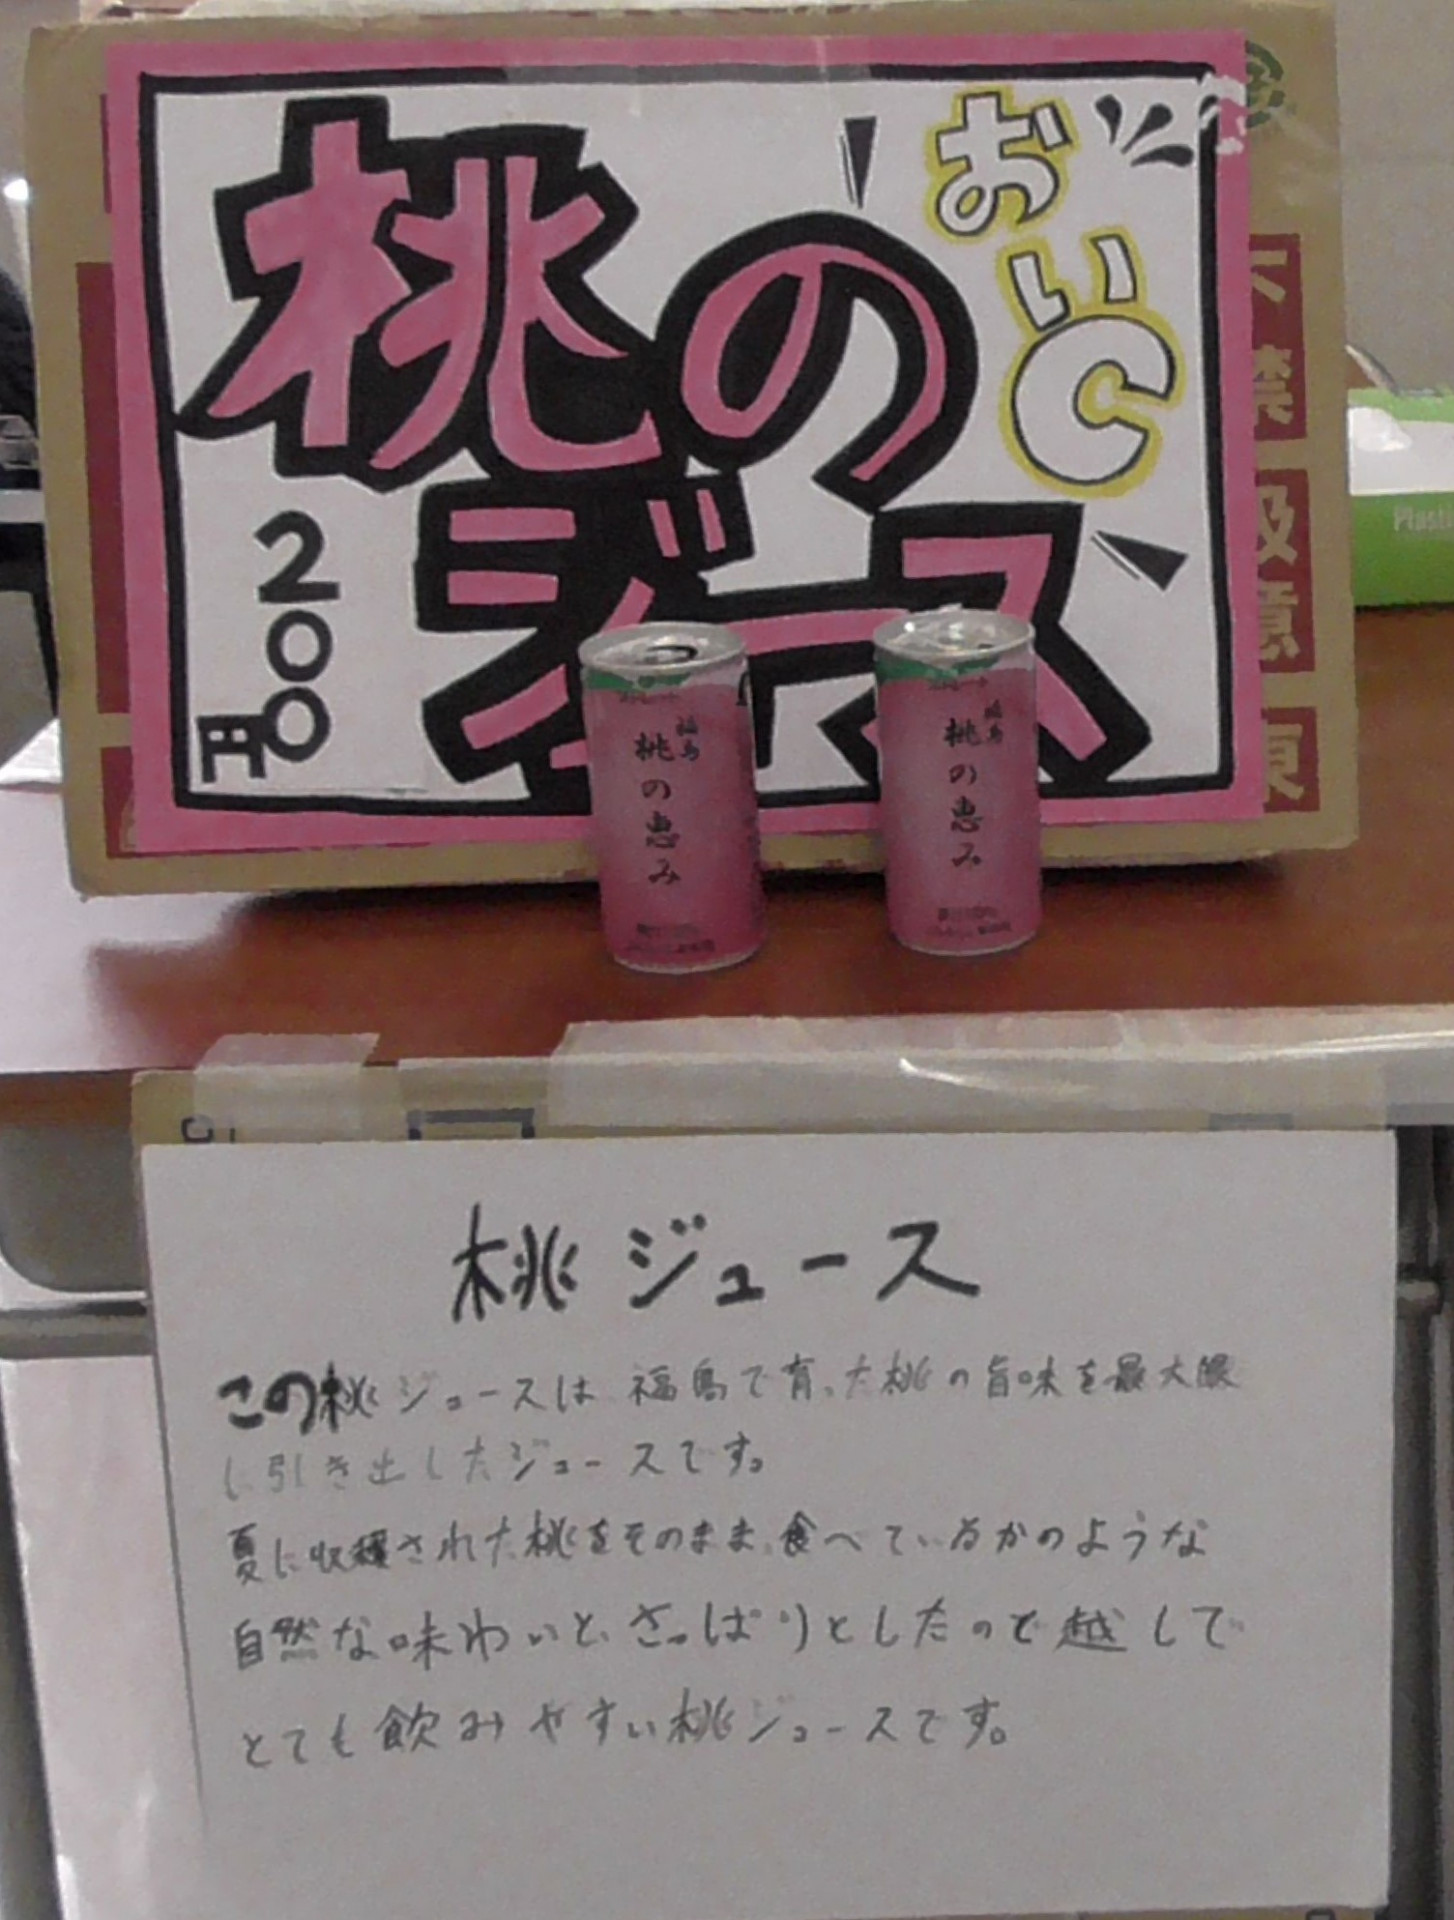 桃の
ジュース
おいC
200
円
福島
桃の恵み
福島
桃の恵み
Plast
桃ジュース
この桃ジュースは福島で育った桃の旨味を最大限
に引き出したジュースです。
夏に収穫された桃をそのまま食べているかのような
自然な味わいと、さっぱりとしたのど越しで
とても飲みやすい桃ジュースです。